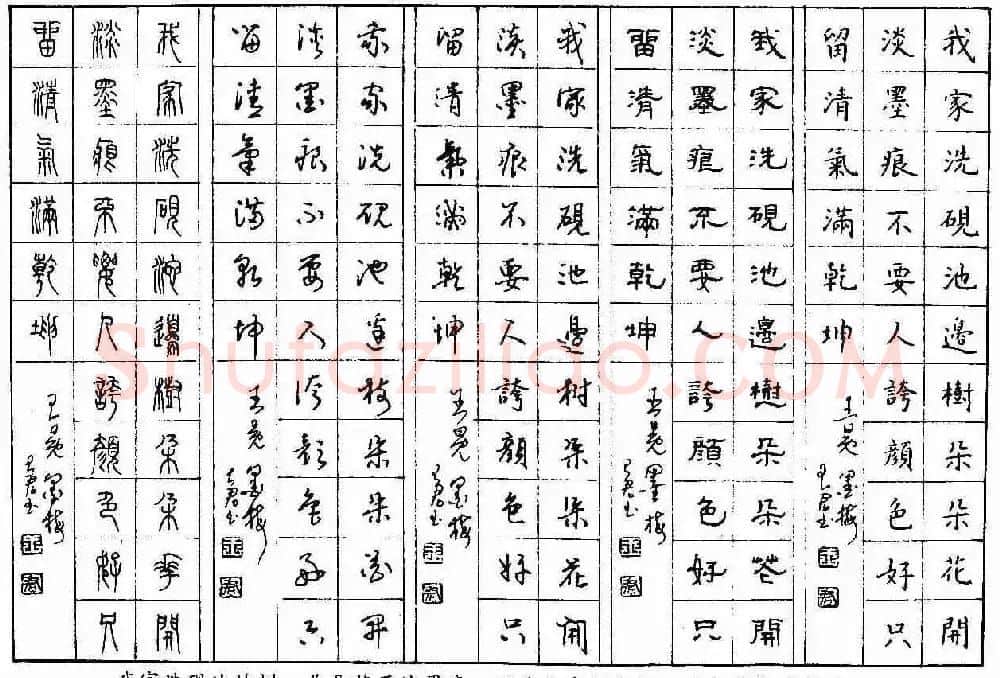 我家洗硯池邊樹朵朵花開
淡墨痕不要人誇顏色好只
留清氣滿乾坤
王冕墨梅
我家洗硯池邊樹朵朵花開
淡墨痕不要人誇顏色好只
留清氣滿乾坤
王冕墨梅
我家洗硯池邊树朵朵花開
淡墨痕不要人誇顏色好只
留清氣滿乾坤
王冕墨梅
我家洗硯池邊枝朵朵花開
淡墨痕不要人誇彩色好只
留清氣滿乾坤
王冕墨梅
我家洗硯池邊樹朵朵華開
淡墨痕不要人誇顏色好只
留清氣滿乾坤
王冕墨梅
Shufaziliao.COM